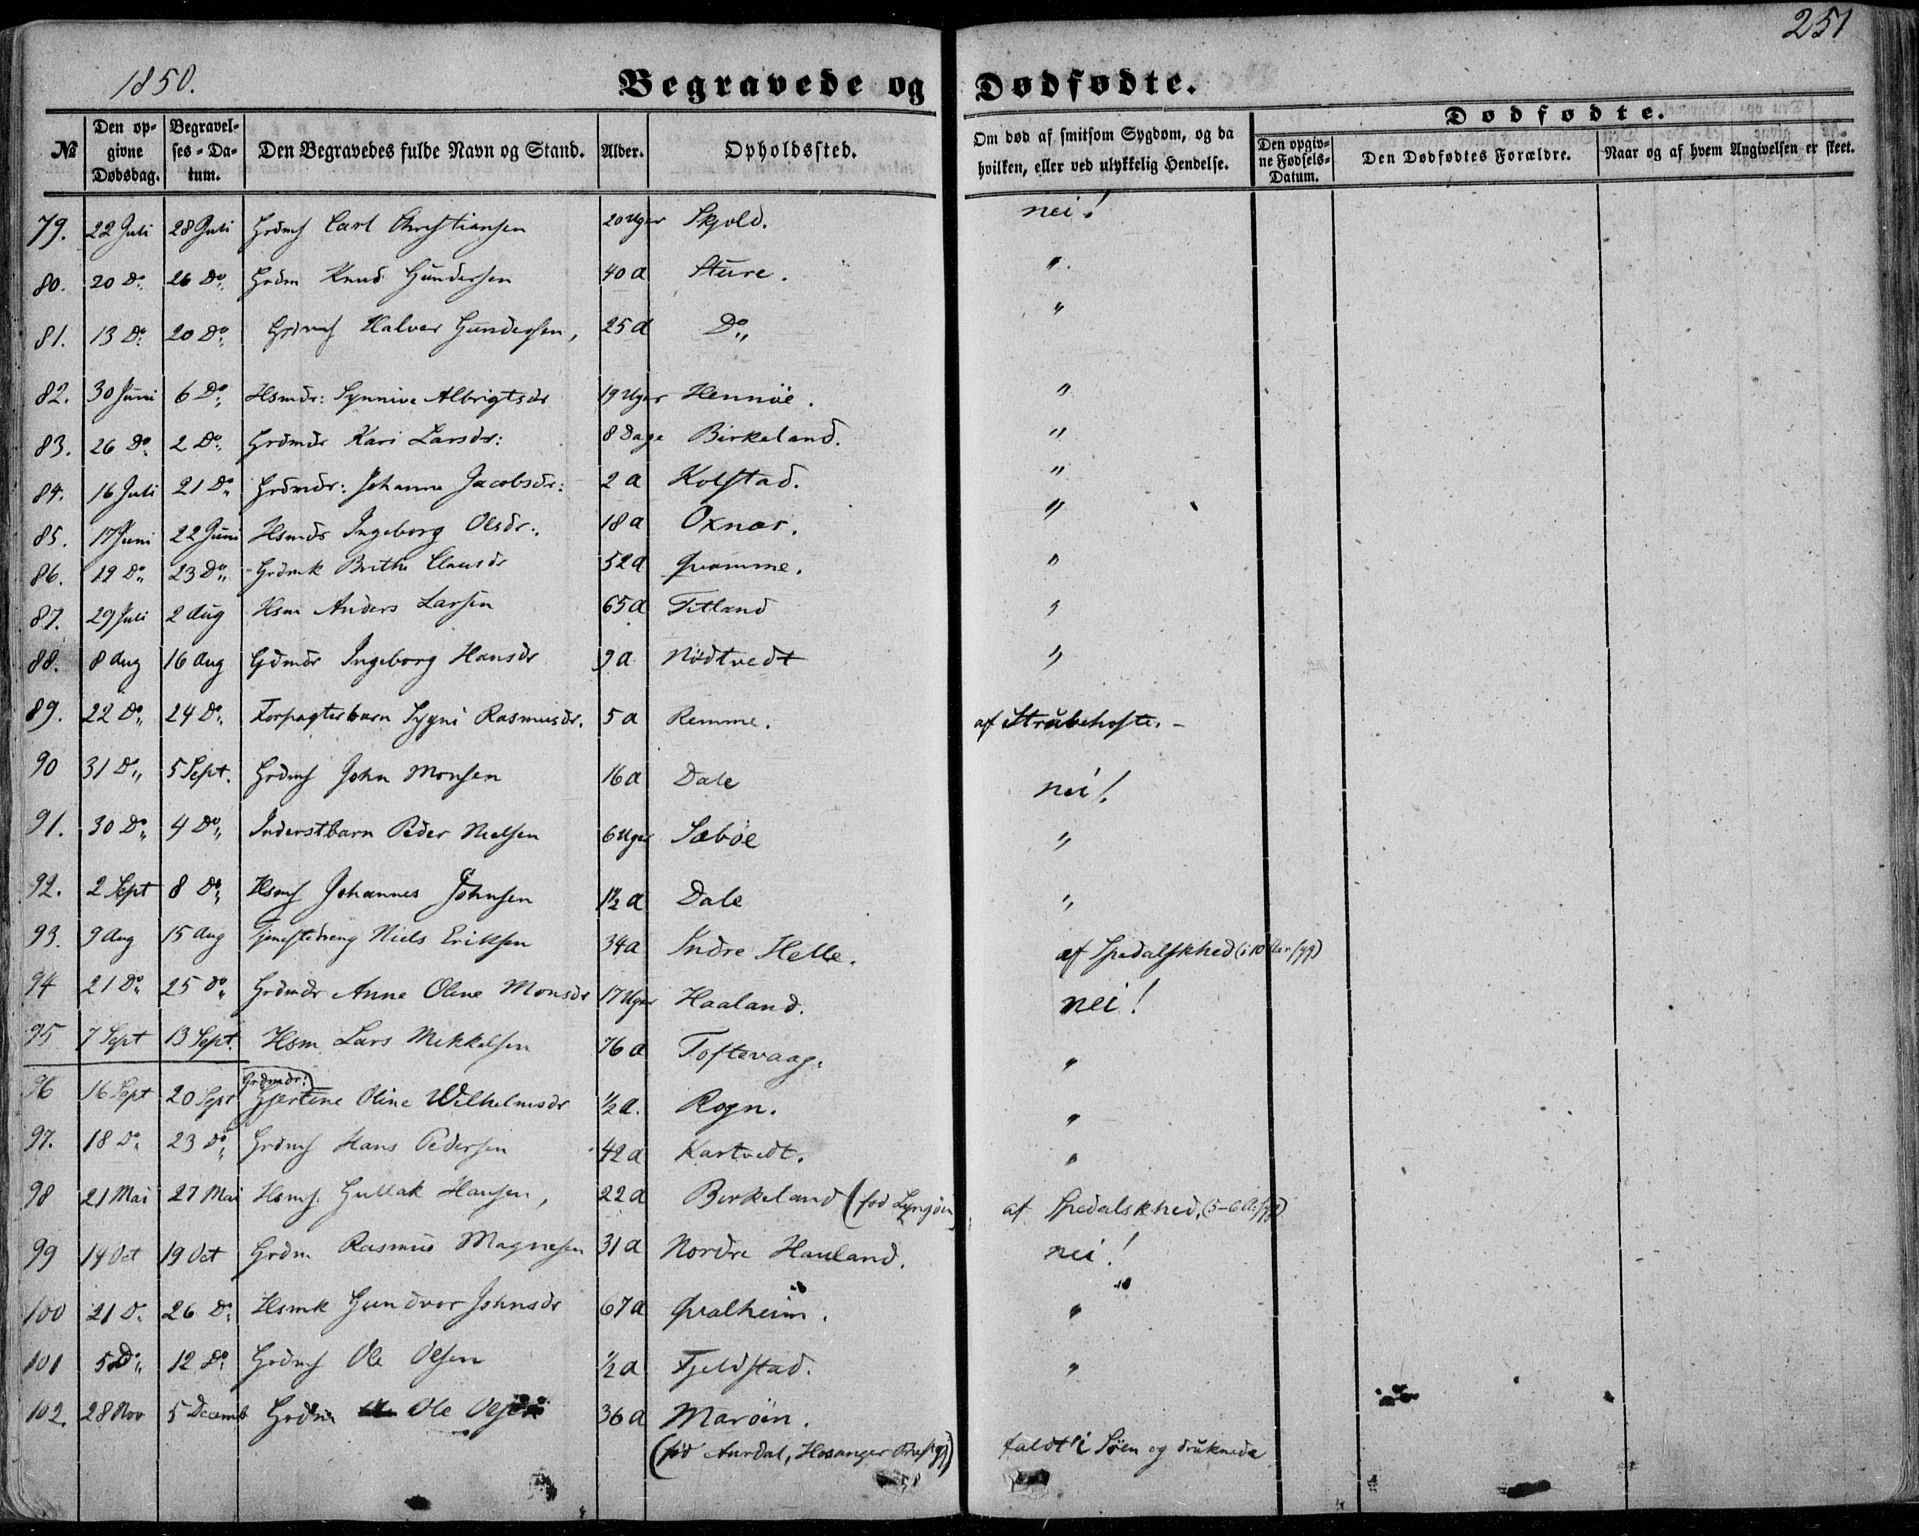 251
1850.
Begravede og Dødfødte.
Dødfødte.
№ Den opgivne Dødsdag. Begravelses-Datum. Den Begravedes fulde Navn og Stand. Alder. Opholdssted. Om død af smitsom Sygdom, og da hvilken, eller ved ulykkelig Hendelse. Den opgivne Fødsels-Datum. Den Dødfødtes Forældre. Naar og af hvem Angivelsen er skeet.
79. 22 Juli 28 Juli Grdms Carl Christiansen 20 Uger Skjold. nei!
80. 20 Do. 26 Do. Grdm Knud Gundersen 40 a Sture. "
81. 13 Do. 20 Do. Grdms Halvor Gundersen, 25 a Do. "
82. 30 Juni 6 Do. Hsmdr: Synnive Albrigtsdr 19 Uger Hennöe. "
83. 26 Do. 2 Do. Grdmdr Kari Larsdr: 8 Dage Birkeland. "
84. 16 Juli 21 Do. Grdmdr: Johanna Jacobsdr: 2 a Kolstad. "
85. 17 Juni 22 Juni Hsmdr Ingeborg Olsdr: 18 a Oxnæs. "
86. 19 Do. 23 Do. Grdmk Brithe Clausdr 52 a Qvamme. "
87. 29 Juli 2 Aug Hsm Anders Larsen 65 a Titland "
88. 8 Aug 16 Aug Gdmdr Ingeborg Hansdr 9 a Nödtvedt "
89. 22 Do. 24 Do. Forpagterbarn Sygni Rasmusdr. 5 a Remme. af Strubehoste.
90 31 Do. 5 Sept. Grdms John Monsen 16 a Dale nei!
91. 30 Do. 4 Do. Inderstbarn Peder Nielsen 6 Uger Sæböe "
92. 2 Sept 8 Do. Hsms Johannes Johnsen 1½ a Dale "
93. 9 Aug 15 Aug Tjenestedreng Niels Eriksen 34 a Indre Helle. af Spedalskhed (i 10 Aar syg)
94 21 Do. 25 Do. Grdmdr Anne Oline Monsdr 17 Uger Haaland. nei!
95 7 Sept 13 Sept. Hsm Lars Mikkelsen 76 a Toftevaag. "
96 16 Sept 20 Sept Grdmdr: Gjertine Oline Wilhelmsdr ½ a. Rogn. "
97. 18 Do. 23 Do. Grdms Hans Pedersen 42 a Kartvedt. "
98 21 Mai 27 Mai Hsms. Gullak Hansen, 22 a Birkeland (föd Lyngöen) af Spedalskhed, (5-6 A. syg)
99 14 Oct 19 Oct Grdm Rasmus Magnesen 31 a Nordre Hauland. nei!
100 21 D. 26 Do. Hsmk Gundvor Johnsdr 67 a Qvalheim. "
101 5 Do. 12 Do. Grdms Ole Olsen ½ a Fjeldstad. "
102. 28 Nov 5 Decemb Grdm Ole Olsen 36 a Maröen.
(föd Aurdal, Hosanger Præstgj) faldt i Söen og druknede